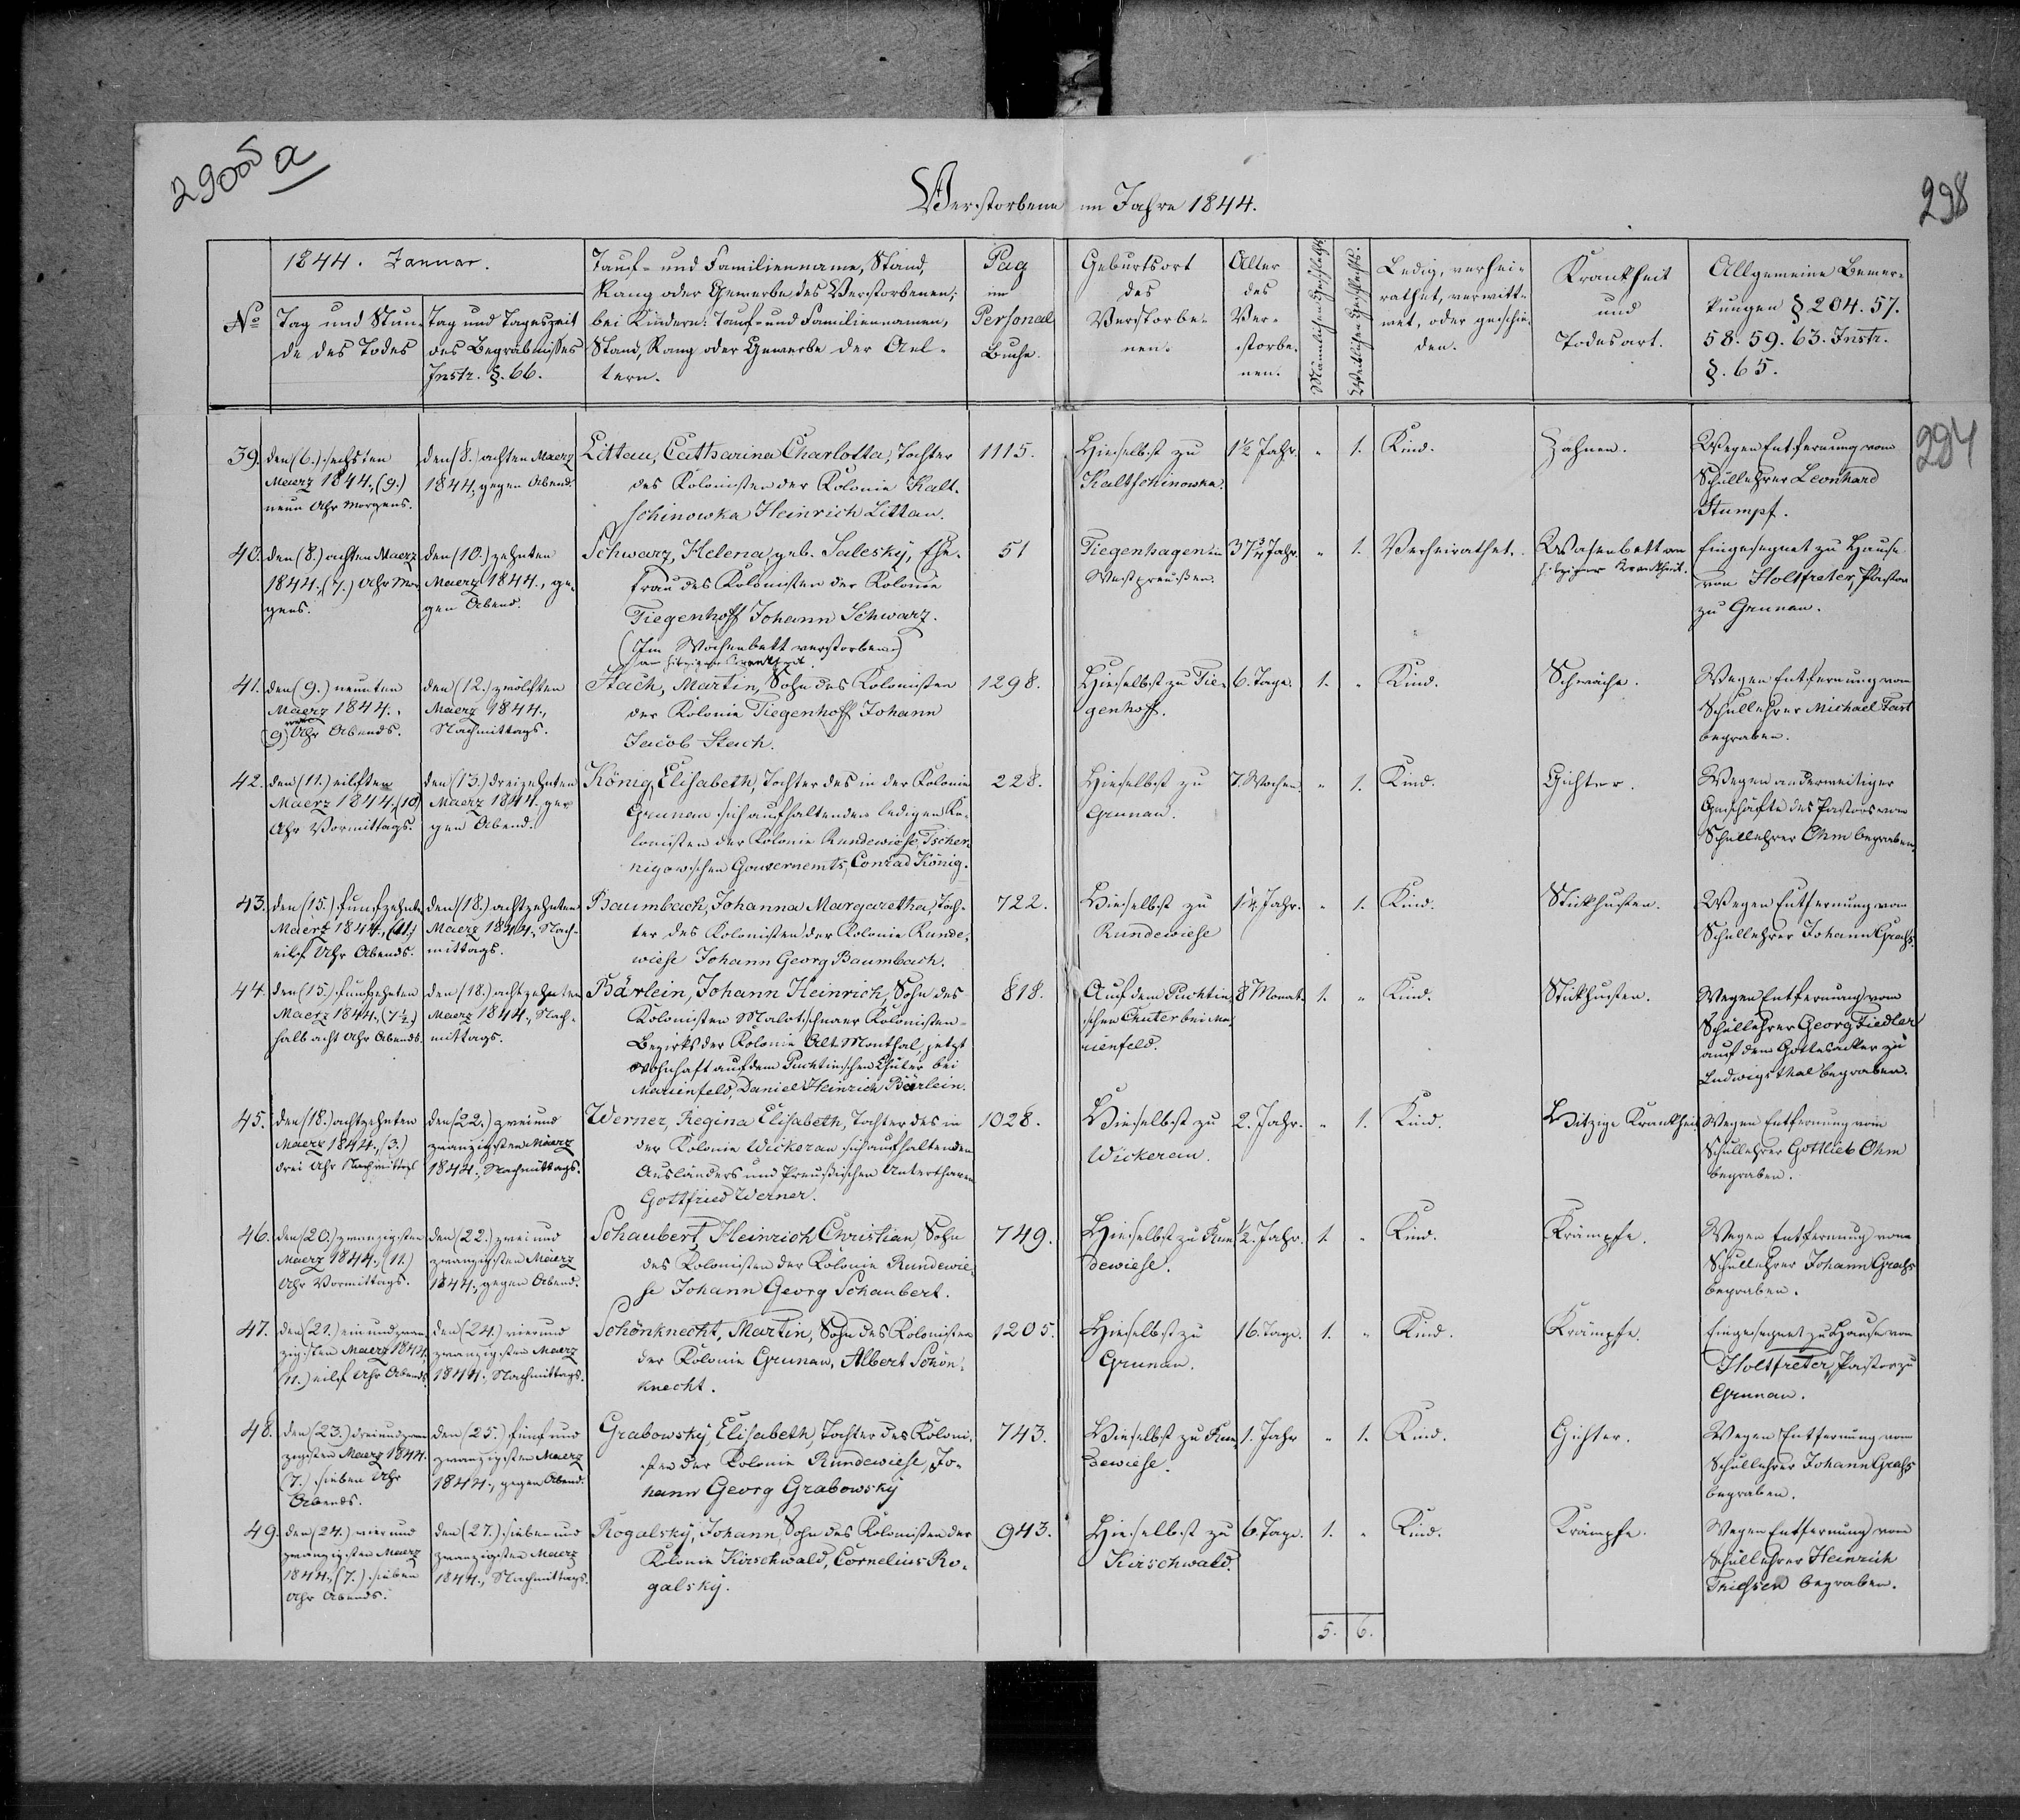 29005 a
298
Verstorbene im Jahre 1844.
1844. Januar.
Nº
Tag und Stun-
de des Todes
Tag und Tageszeit
des Begräbnisses
Instr. §. 66.
Tauf- und Familienname, Stand,
Rang oder Gewerbe des Verstorbenen;
bei Kindern: Tauf- und Familiennamen,
Stand, Rang oder Gewerbe der Ael-
tern.
Pag
im
Personal
Buche.
Geburtsort
des
Verstorbe-
nen.
Alter
des
Ver-
storbe-
nen.
Männlichen Geschlechts.
Weiblichen Geschlechts.
Ledig, verhei-
rathet, verwitt-
wet, oder geschie-
den.
Krankheit
und
Todesart.
Allgemeine Bemer-
kungen § 204. 57.
58. 59. 63. Instr.
§. 65.
294
39.
den (6.) sechsten
Maerz 1844, (9.)
neun Uhr Morgens.
den (8.) achten Maerz
1844, gegen Abend.
Littau, Catharina Charlotta, Tochter
des Kolonisten der Kolonie Kalt-
schinowka Heinrich Littau.
1115.
Hieselbst zu
Kaltschinowka.
1½ Jahr.
"
1.
Kind.
Zahnen.
Wegen Entfernung vom
Schullehrer Leonhard
Stumpf.
40.
den (8.) achten Maerz
1844, (7.) Uhr Mor-
gens.
den (10.) zehnten
Maerz 1844, ge-
gen Abend.
Schwarz, Helena, geb. Salesky, Ehe-
frau des Kolonisten der Kolonie
Tiegenhoff Johann Schwarz.
(Im Wochenbett verstorben)
an hitziger Krankheit.
51
Tiegenhagen in
Westpreußen.
37¾ Jahr.
"
1.
Verheirathet.
Wochenbett an
hitziger Krankheit.
Eingesegnet zu Hause
von Holtfreter, Pastor
zu Grunau.
41.
den (9.) neunten
Maerz 1844.
(9) neun Uhr Abends.
den (12.) zwölften
Maerz 1844,
Nachmittags.
Stach, Martin, Sohn des Kolonisten
der Kolonie Tiegenhoff Johann
Jacob Stach.
1298.
Hieselbst zu Tie-
genhoff.
6. Tage.
1.
"
Kind.
Schwäche.
Wegen Entfernung vom
Schullehrer Michael Fast
begraben.
42.
den (11.) eilften
Maerz 1844, (10)
Uhr Vormittags.
den (13.) dreizehnten
Maerz 1844. ge-
gen Abend.
König, Elisabeth, Tochter des in der Kolonie
Grunau sich aufhaltenden ledigen Ko-
lonisten der Kolonie Rundewiese, Tscher-
nigowschen Gouvernemts, Conrad König.
228.
Hieselbst zu
Grunau.
7. Wochen.
"
1.
Kind.
Gichter.
Wegen anderweitiger
Geschäfte des Pastors vom
Schullehrer Ohm begraben.
43.
den (15.) funfzehnten
Maerz 1844, (11.)
eilf Uhr Abends.
den (18.) achtzehnten
Maerz 1844, Nach-
mittags.
Baumbach, Johanna Margaretha, Toch-
ter des Kolonisten der Kolonie Runde-
wiese Johann Georg Baumbach.
722.
Hieselbst zu
Rundewiese
1¼ Jahr.
"
1.
Kind.
Stickhusten.
Wegen Entfernung vom
Schullehrer Johann Grahs.
44.
den (15.) funfzehnten
Maerz 1844, (7½.)
halb acht Uhr Abends.
den (18.) achtzehnten
Maerz 1844, Nach-
mittags.
Bärlein, Johann Heinrich, Sohn des
Kolonisten Malotschnaer Kolonisten-
Bezirks der Kolonie Alt Monthal, jetzt
wohnhaft auf dem Puchtinschen Chuter bei
Marienfeld, Daniel Heinrich Bärlein.
818.
Auf dem Puchtin-
schen Chuter bei Ma-
rienfeld.
8 Monat.
1.
"
Kind.
Stickhusten.
Wegen Entfernung vom
Schullehrer Georg Fiedler
auf dem Gottesacker zu
Ludwigsthal begraben.
45.
den (18.) achtzehnten
Maerz 1844, (3.)
drei Uhr Nachmittags
den (22.) zwei und
zwanzigsten Maerz
1844, Nachmittags.
Werner, Regina Elisabeth, Tochter des in
der Kolonie Wickerau sich aufhaltenden
Ausländers und Preußischen Unterthanen
Gottfried Werner.
1028.
Hieselbst zu
Wickerau.
2. Jahr.
"
1.
Kind.
Hitzige Krankheit
Wegen Entfernung vom
Schullehrer Gottlieb Ohm
begraben.
46.
den (20.) zwanzigsten
Maerz 1844, (11.)
Uhr Vormittags.
den (22.) zwei und
zwanzigsten Maerz
1844, gegen Abend.
Schaubert, Heinrich Christian, Sohn
des Kolonisten der Kolonie Rundewie-
se Johann Georg Schaubert.
749.
Hieselbst zu Run-
dewiese.
½. Jahr.
1.
"
Kind.
Krämpfe.
Wegen Entfernung vom
Schullehrer Johann Grahs
begraben.
47.
den (21.) ein und zwan-
zigsten Maerz 1844,
(11.) eilf Uhr Abends.
den (24.) vier und
zwanzigsten Maerz
1844, Nachmittags.
Schönknecht, Martin, Sohn des Kolonisten
der Kolonie Grunau, Albert Schön-
knecht.
1205.
Hieselbst zu
Grunau.
16. Tage.
1.
"
Kind.
Krämpfe.
Eingesegnet zu Hause von
Holtfreter, Pastor zu
Grunau.
48.
den (23.) drei und zwan-
zigsten Maerz 1844.
(7.) sieben Uhr
Abends.
den (25.) fünf und
zwanzigsten Maerz
1844, gegen Abend.
Grabowsky, Elisabeth, Tochter des Koloni-
sten der Kolonie Rundewiese, Jo-
hann Georg Grabowsky
743.
Hieselbst zu Run-
dewiese.
1. Jahr
"
1.
Kind.
Gichter.
Wegen Entfernung vom
Schullehrer Johann Grahs
begraben.
49.
den (24.) vier und
zwanzigsten Maerz
1844, (7.) sieben
Uhr Abends.
den (27.) sieben und
zwanzigsten Maerz
1844, Nachmittags.
Rogalsky, Johann, Sohn des Kolonisten der
Kolonie Kirschwald, Cornelius Ro-
galsky.
943.
Hieselbst zu
Kirschwald.
6. Tage.
1.
"
Kind.
Krämpfe.
Wegen Entfernung vom
Schullehrer Heinrich
Thießen begraben.
5.
6.